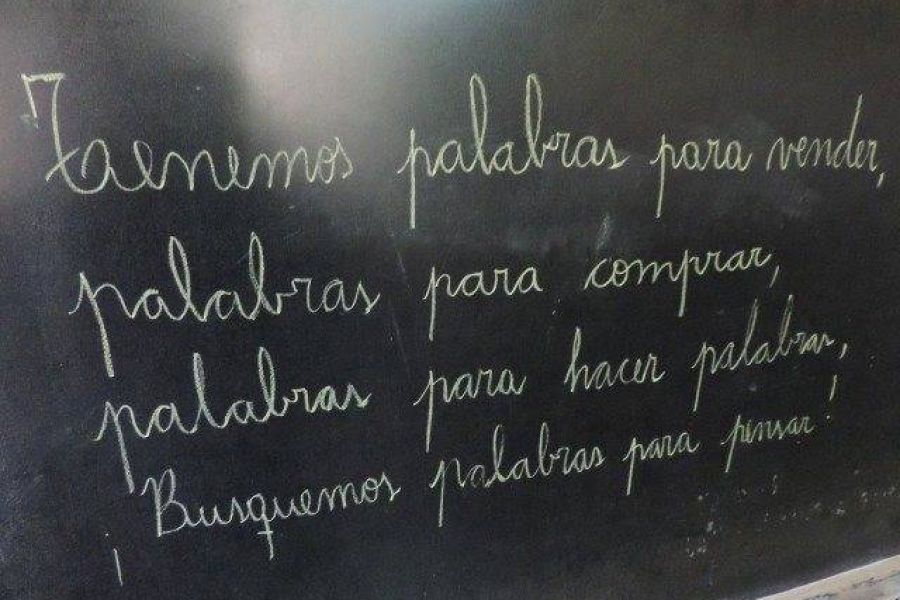 Tenemos palabras para vender,
palabras para comprar,
palabras para hacer palabras,
¡Busquemos palabras para pensar!